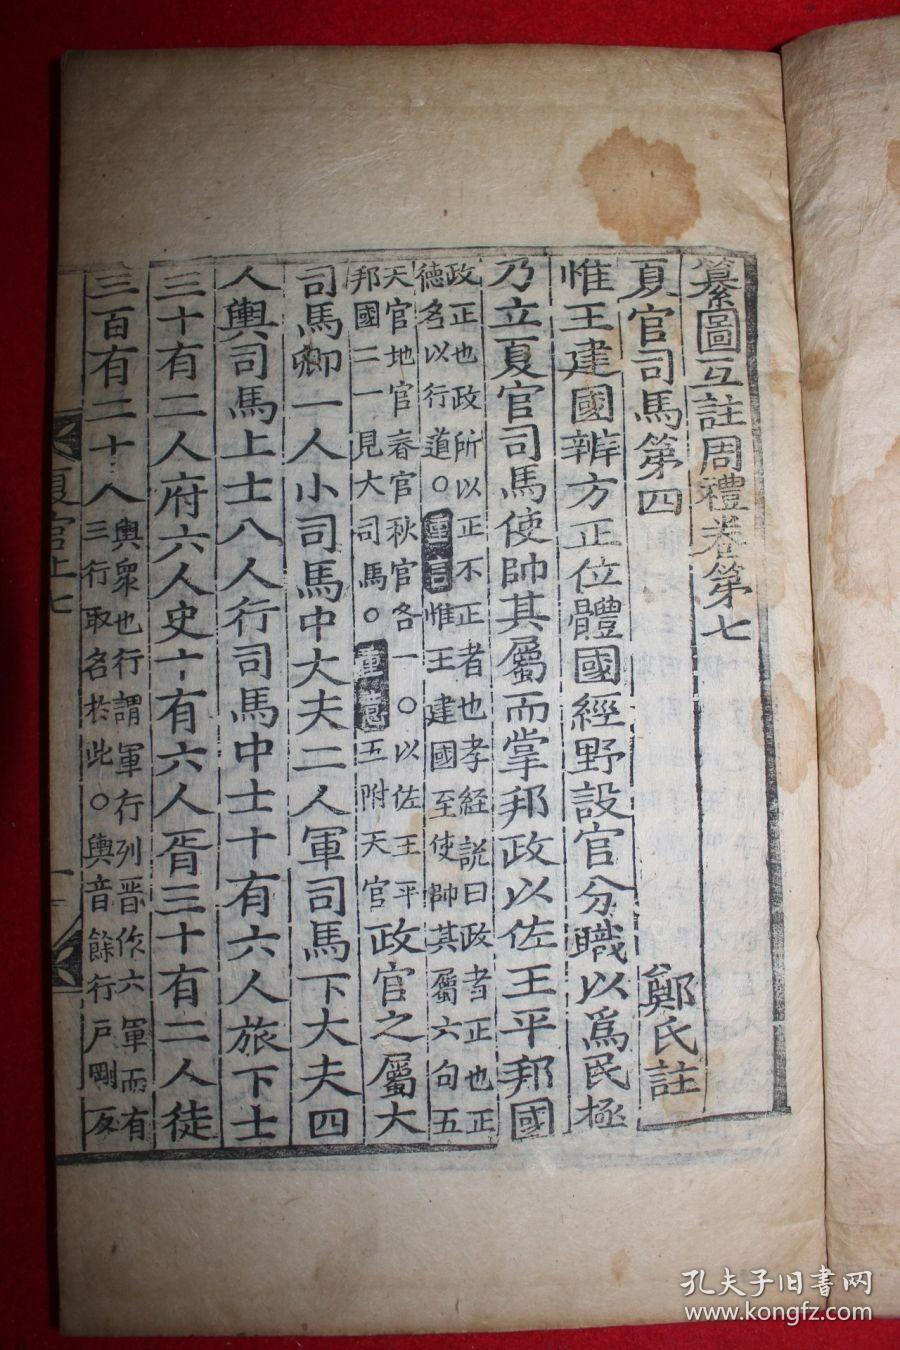 纂圖互註周禮卷第七
夏官司馬第四
鄭氏註
惟王建國辨方正位體國經野設官分職以爲民極
乃立夏官司馬使帥其屬而掌邦政以佐王平邦國
政正也政所以正不正者也孝経説曰政者正也正
德名以行道○重言惟王建國至使帥其屬六句五
天官地官春官秋官各一○以佐王平
邦國二一見大司馬○重意五附天官
政官之屬大
司馬卿一人小司馬中大夫二人軍司馬下大夫四
人輿司馬上士八人行司馬中士十有六人旅下士
三十有二人府六人史十有六人胥三十有二人徒
三百有二十人
輿衆也行謂軍行列晋作六軍而有
三行取名於此○輿音餘行戸剛反
夏官上七
一
孔夫子旧書网
www.kongfz.com